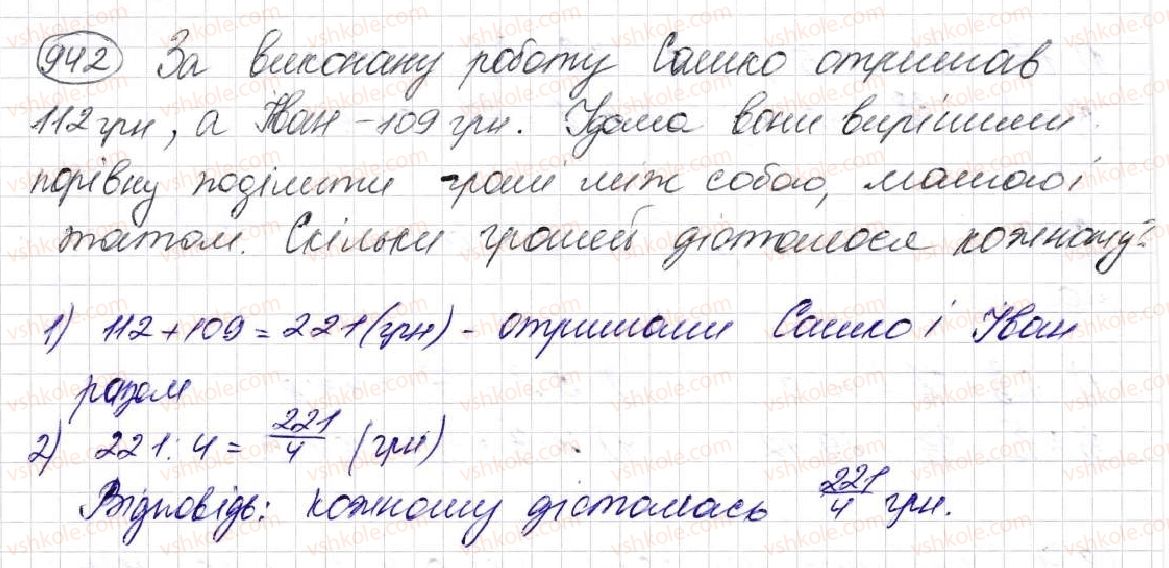 942 За виконану роботу Сашко отримав
112 грн, а Іван - 109 грн. Удома вони вирішили
порівну поділити гроші між собою, мамою і
татом. Скільки грошей дісталося кожному?
1) 112 + 109 = 221 (грн) - отримали Сашко і Іван
разом
2) 221 : 4 = 221/4 (грн)
Відповідь: кожному дісталась 221/4 грн.